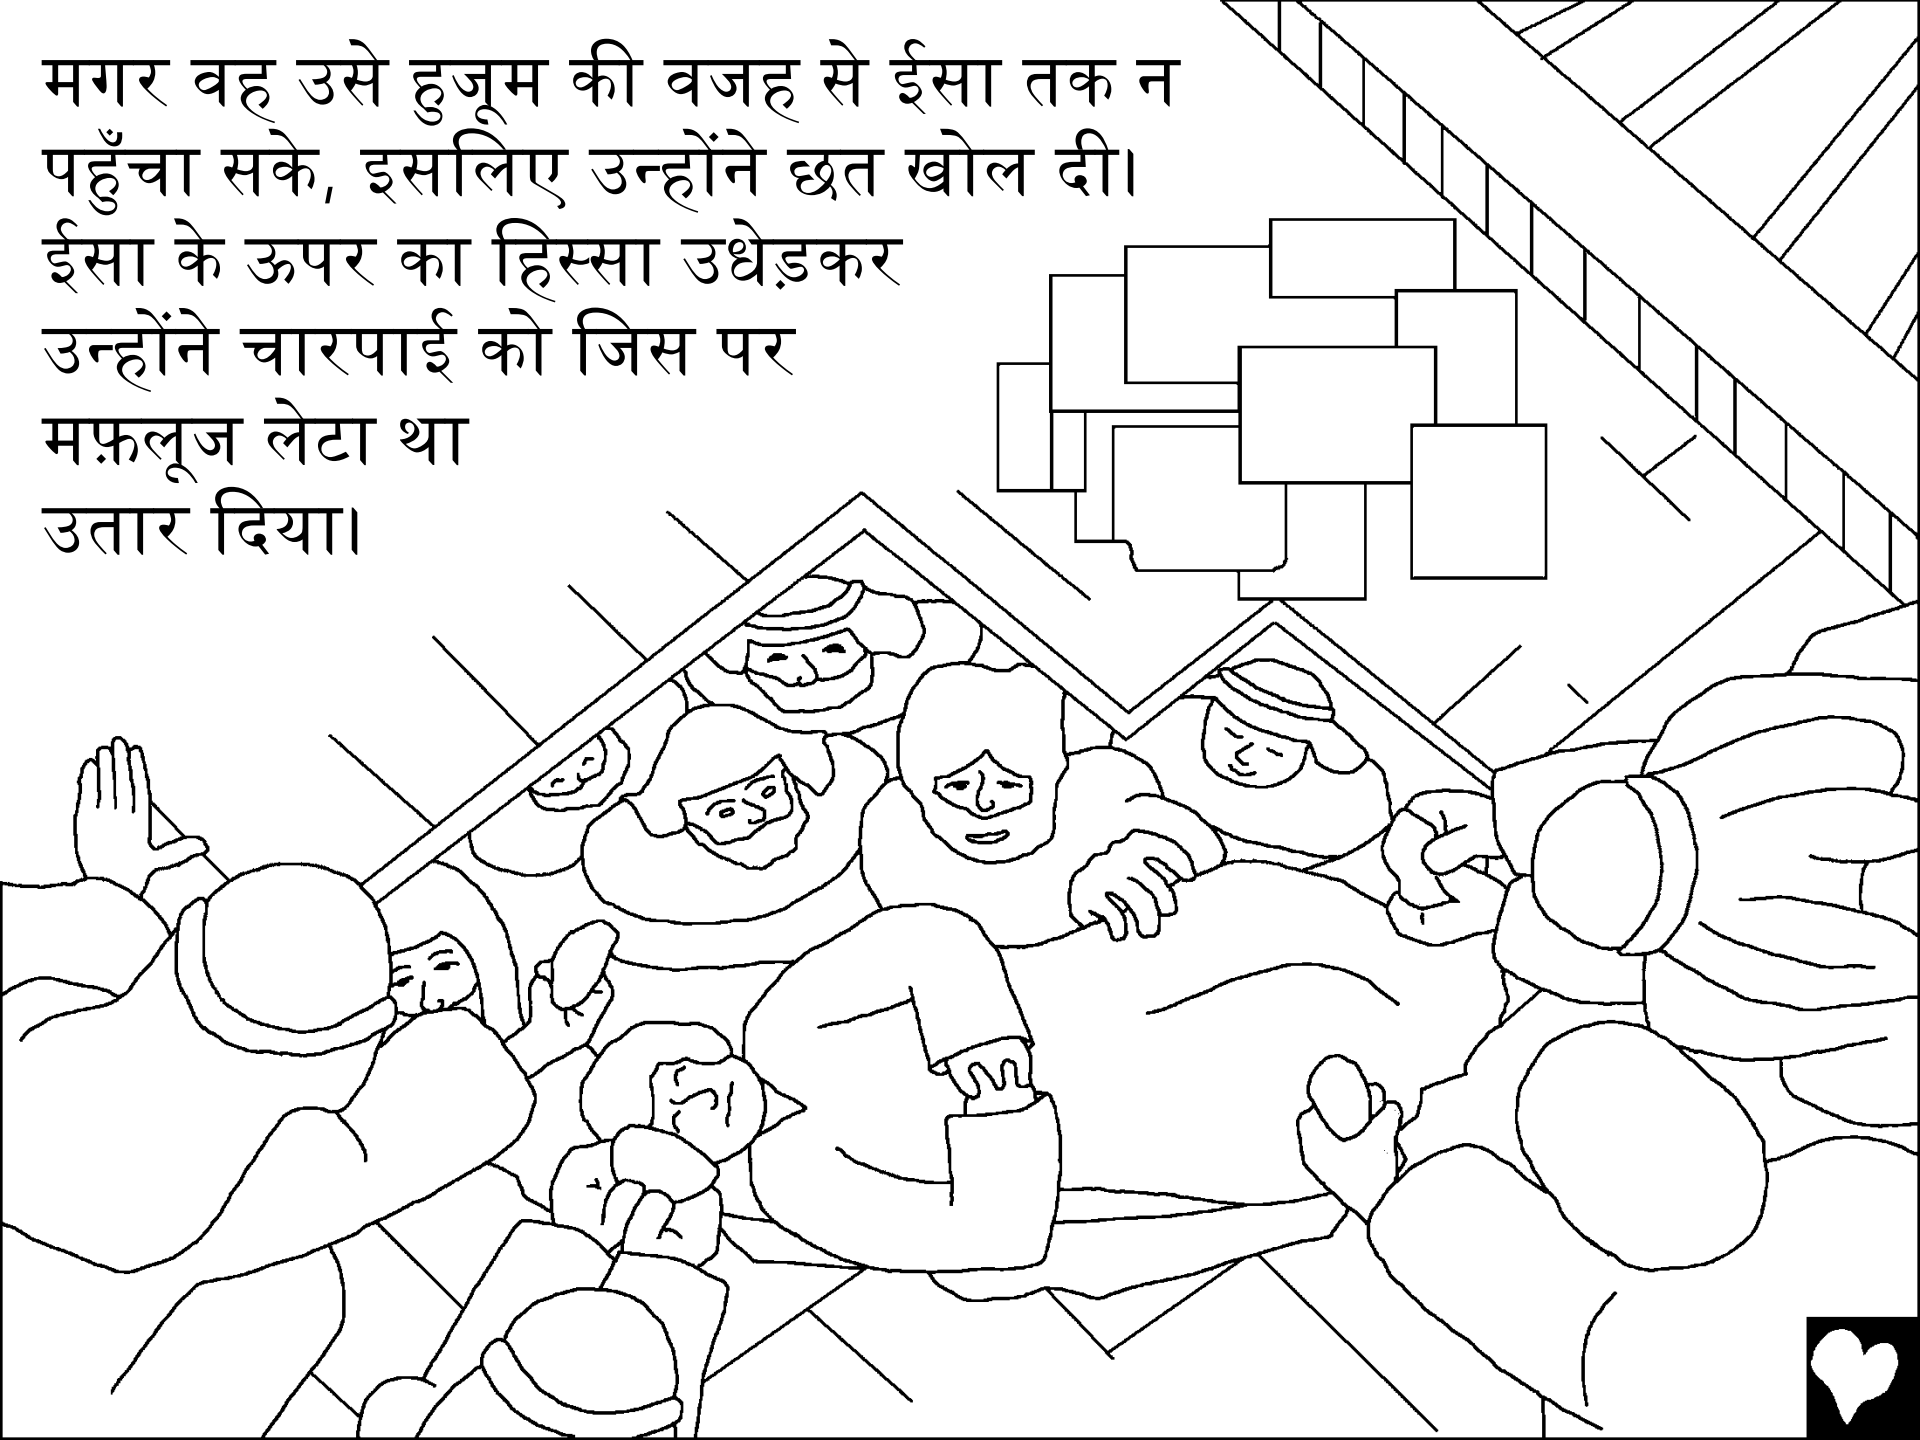 मगर वह उसे हुजूम की वजह से ईसा तक न
पहुँचा सके, इसलिए उन्होंने छत खोल दी।
ईसा के ऊपर का हिस्सा उधेड़कर
उन्होंने चारपाई को जिस पर
मफ़लूज लेटा था
उतार दिया।